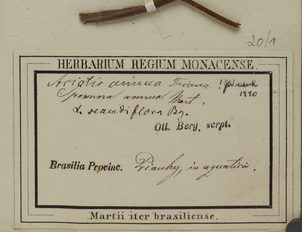 20/1
HERBARIUM REGIUM MONACENSE.
Aciotis annua Triana
1990
Spennera annua Mart.
Ott. Berg. scrpt.
Brasilia Provinc. Piauhy, in aquaticis.
Martii iter brasiliense.